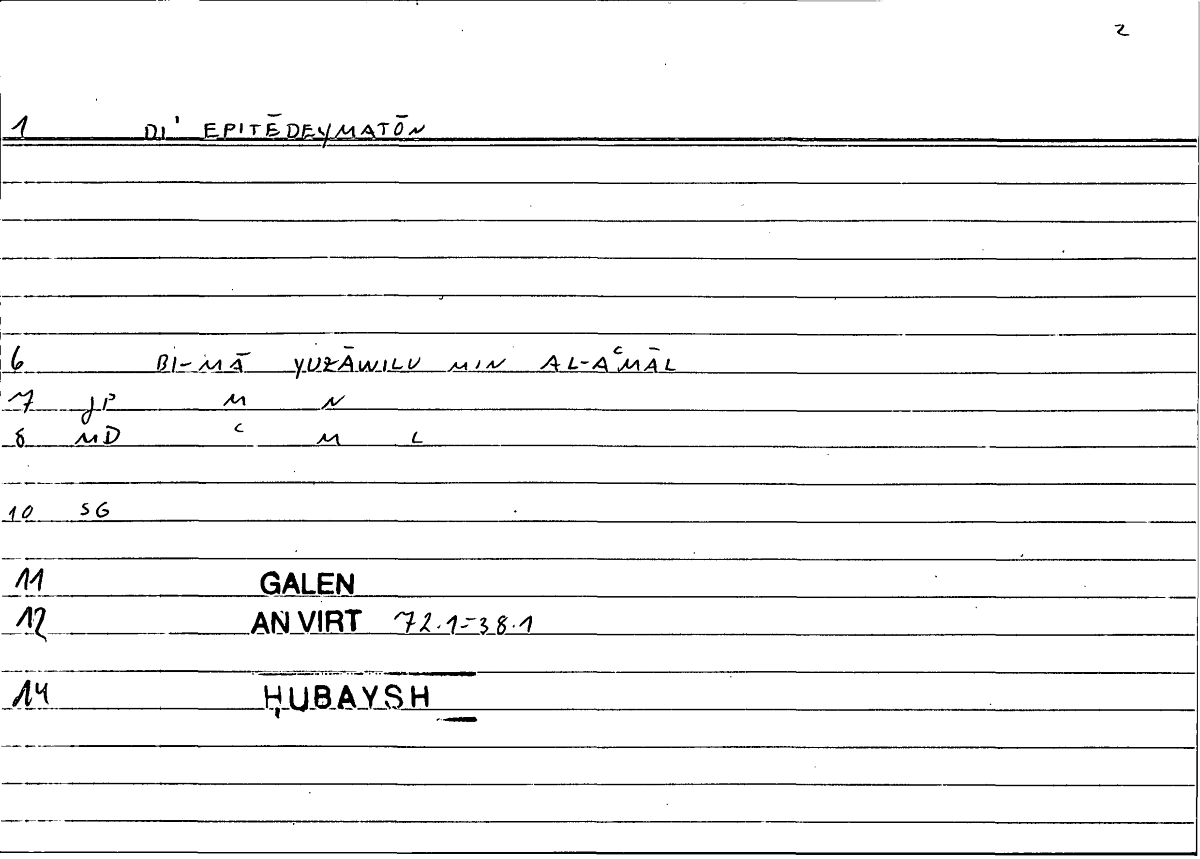 2
1 DI' EPITĒDEYMATŌN
6 BI-MĀ YUZĀWILU MIN AL-AᶜMĀL
7 JP M N
8 MD ᶜ M L
10 SG
11 GALEN
12 AN VIRT 72.1=38.1
14 ḤUBAYSH